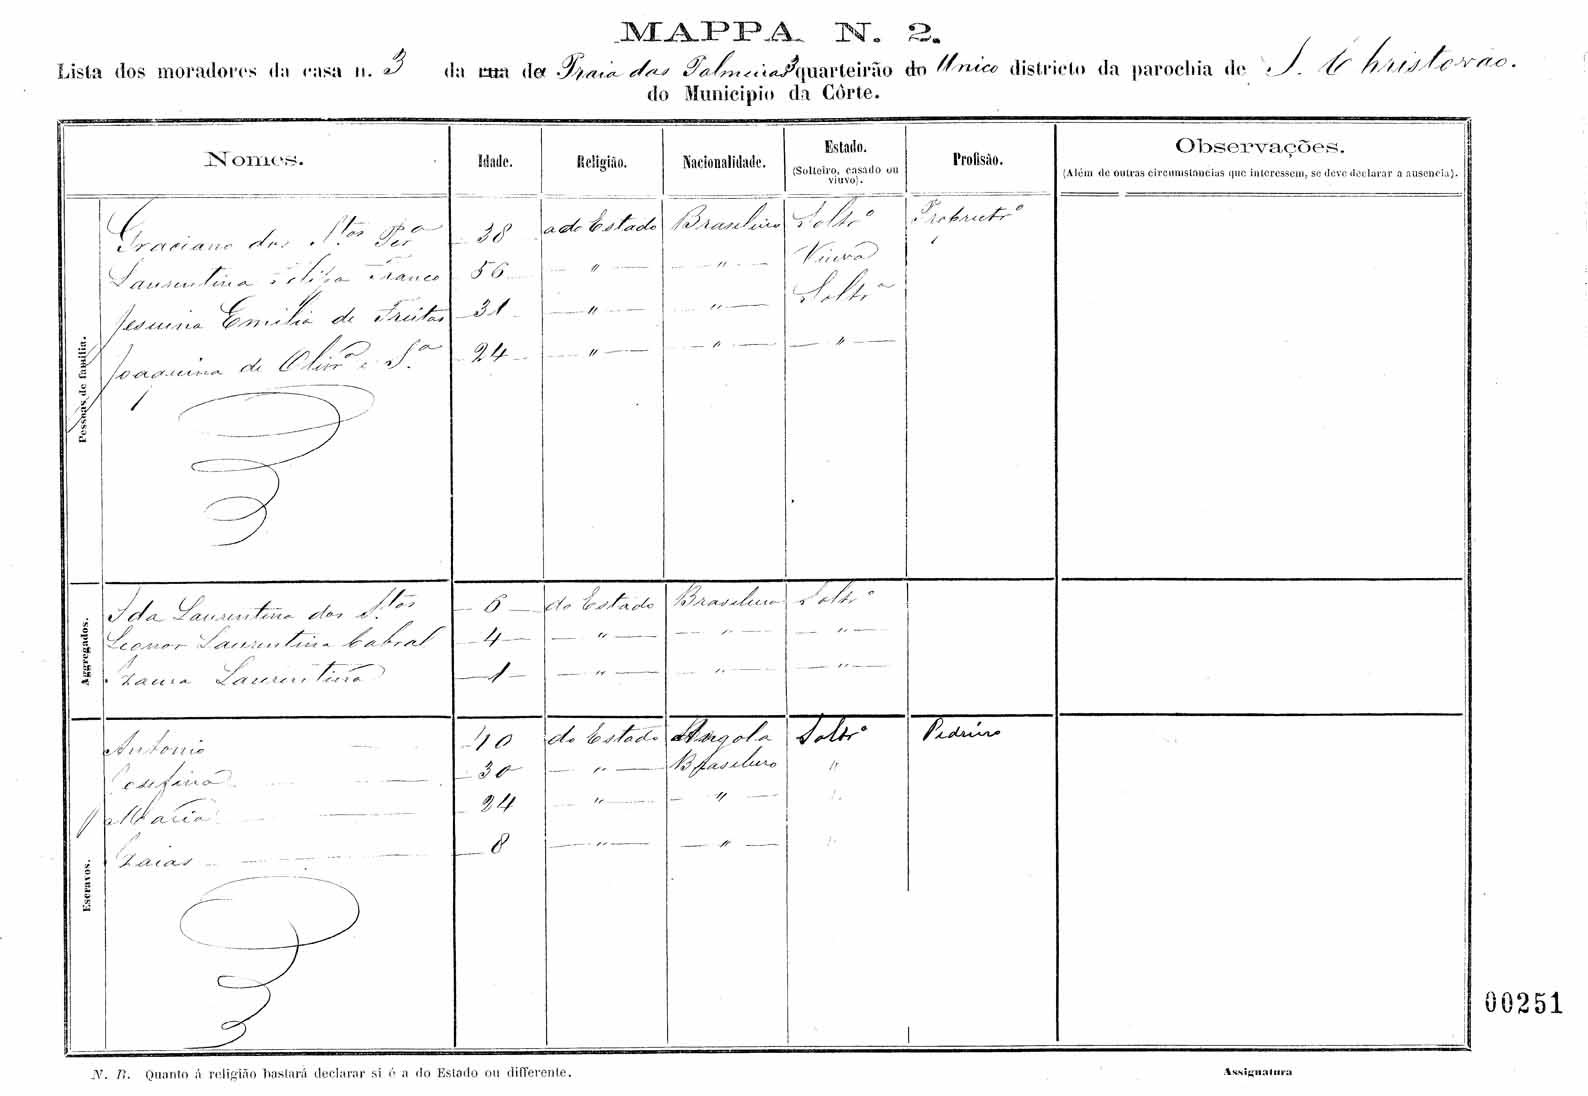 MAPPA N. 2.
Lista dos moradores da casa n. 3 da rua da Praia das Palmeiras 3 quarteirão do Unico districto da parochia de S. Christovão.
do Municipio da Côrte.
Nomes. Idade. Religião. Nacionalidade. Estado. Profisão. Observações.
(Solteiro, casado ou viuvo). (Além de outras circumstancias que interessem, se deve declarar a ausencia).
Pessoas de familia.
Graciano dos Stos Pra 38 a do Estado Brasileiro Soltro Proprietro
Laurentina Feliza Franco 56 " " Viuva
Jesuina Emilia de Freitas 31 " " Soltra
Joaquina de Olivra e Sa 24 " " "
Aggregados.
Ida Laurentina dos Stos 6 do Estado Brasileiro Soltro
Leonor Laurentina Cabral 4 " " "
Izaura Laurentina 1 " " "
Escravos.
Antonio 40 do Estado Angola Soltro Pedreiro
Josefina 30 " Brasileiro "
Maria 24 " " "
Izaias 8 " " "
00251
N. B. Quanto á religião bastará declarar si é a do Estado ou differente.
Assignatura